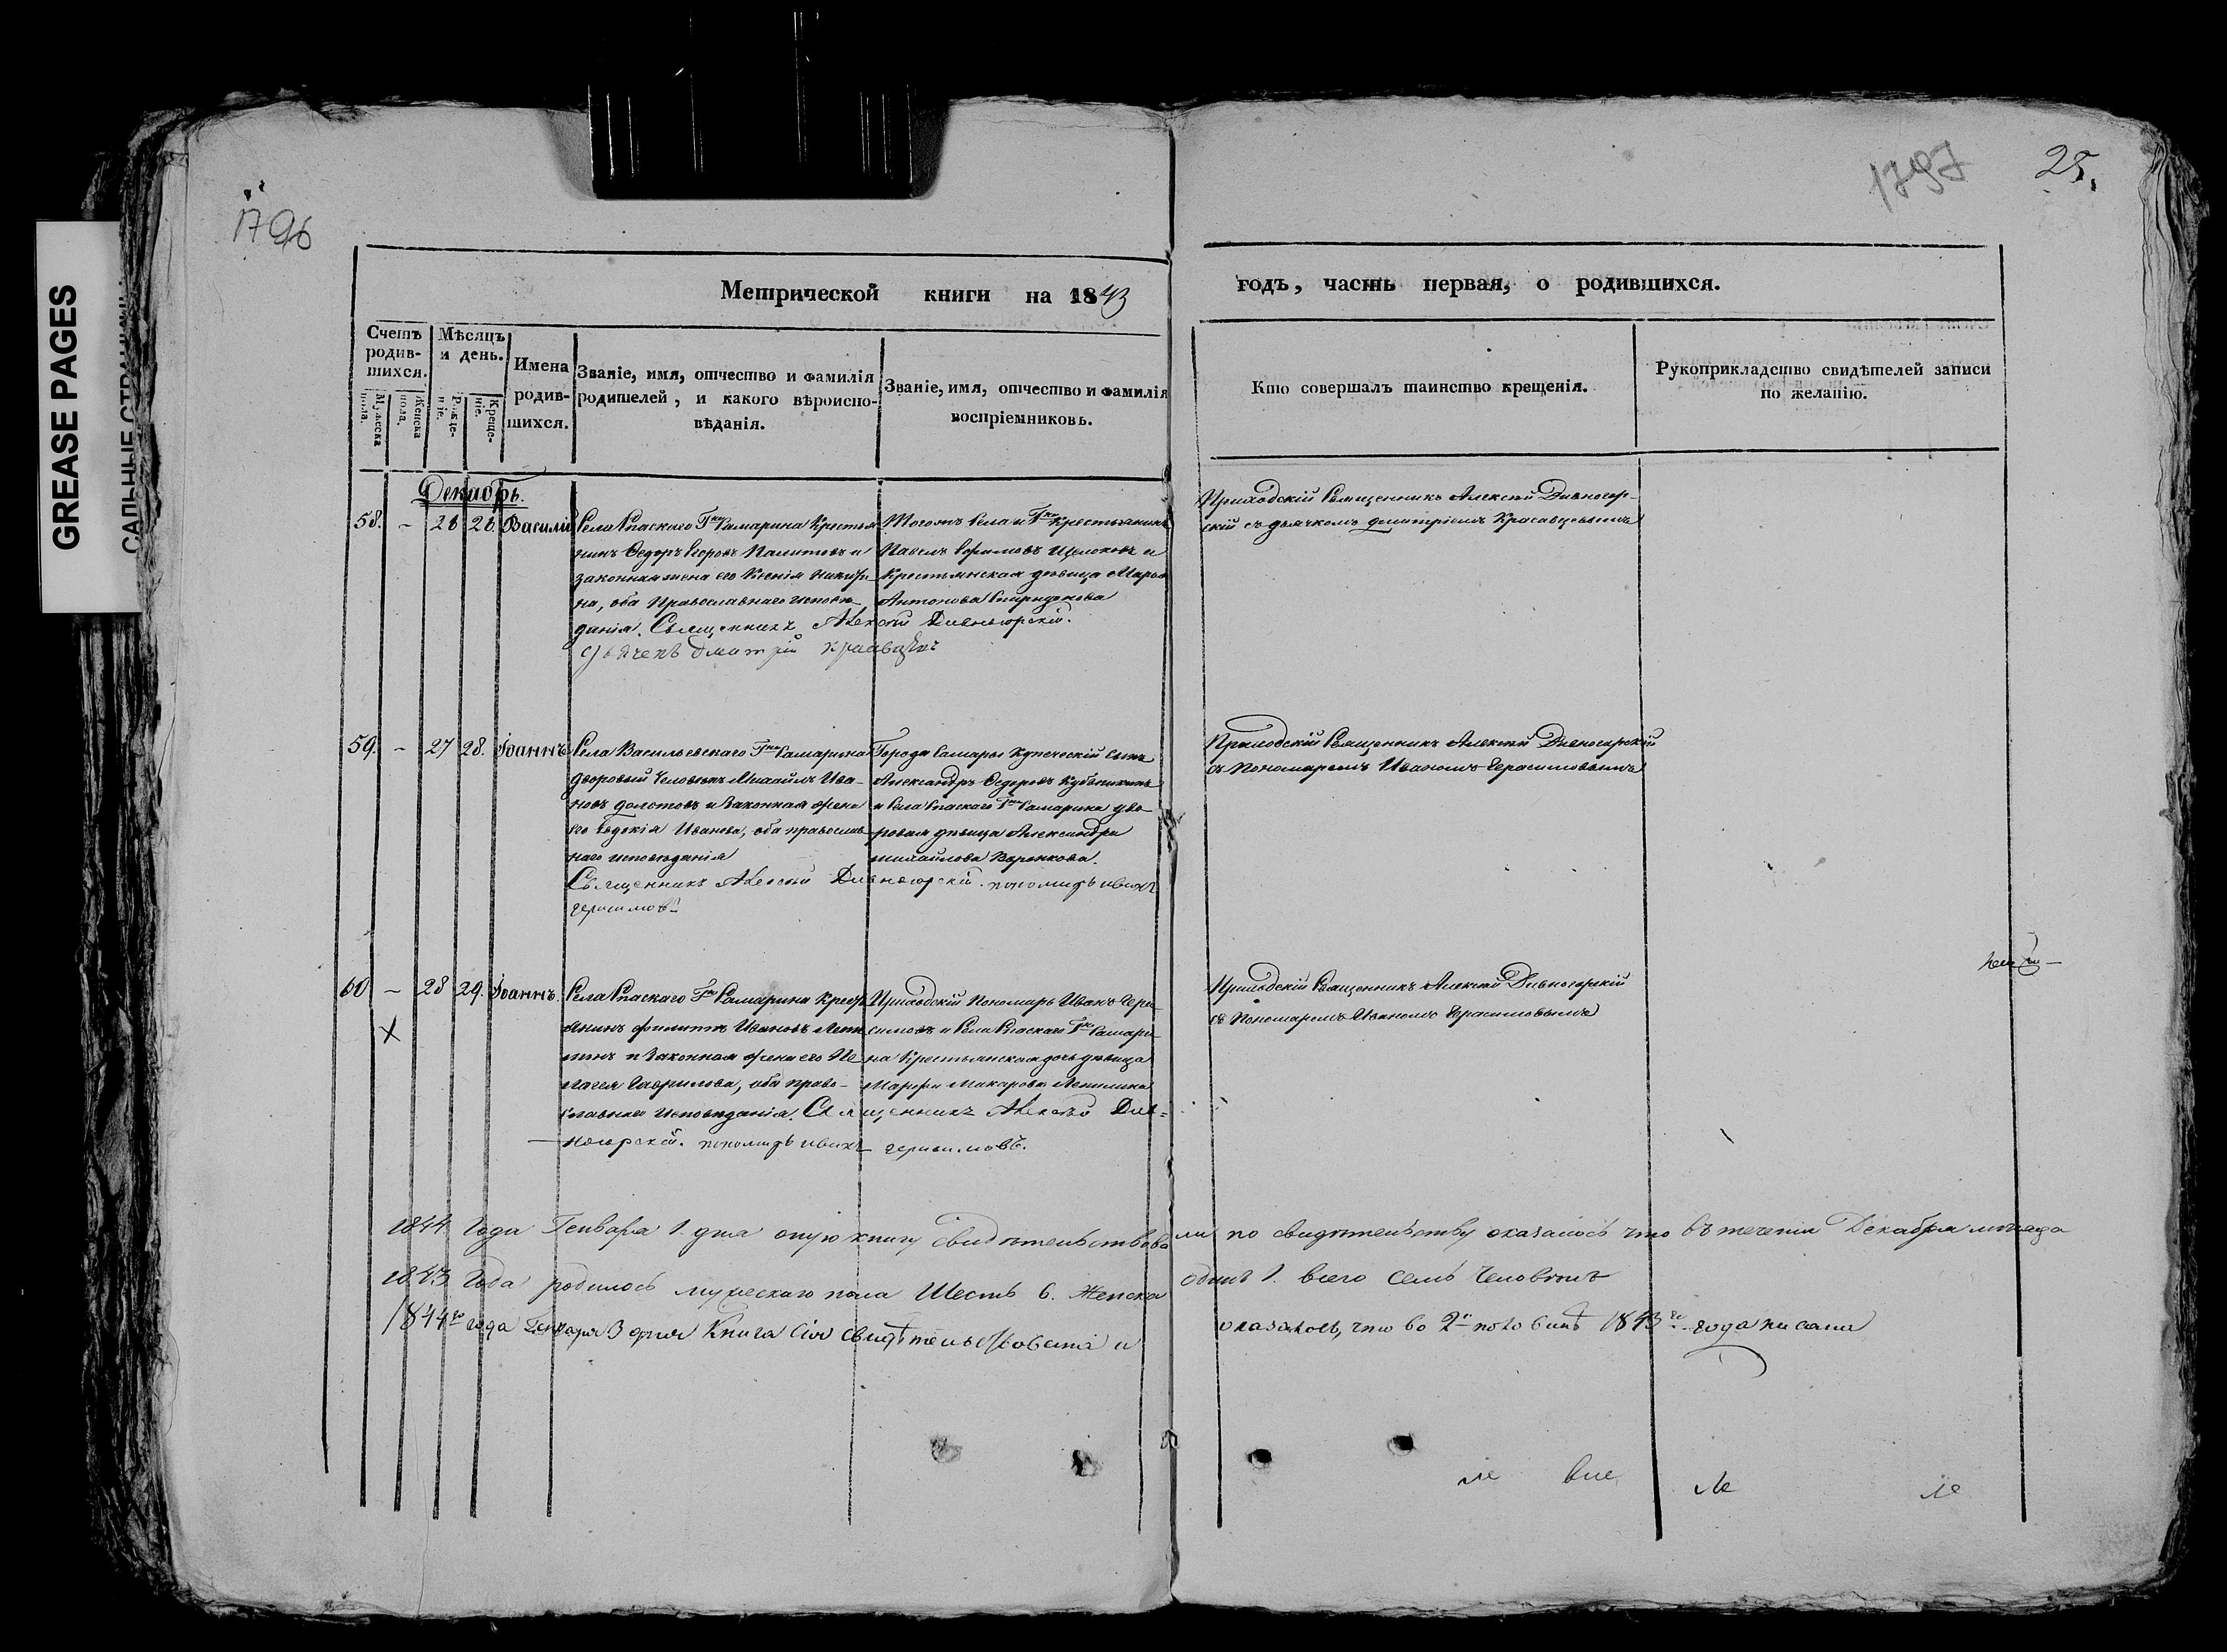 GREASE PAGES
САЛЬНЫЕ
1796
1797
25.
Метрической книги на 1843
годъ, часть первая, о родившихся.
Счетъ родив-
шихся.
Мужеска пола.
Женска пола.
Мѣсяцъ
и день.
Рожде-
ніе.
Креще-
ніе.
Имена
родив-
шихся.
Званіе, имя, отчество и фамилія
родителей, и какого вѣроиспо-
вѣданія.
Званіе, имя, отчество и фамилія
воспріемниковъ.
Кто совершалъ таинство крещенія.
Рукоприкладство свидѣтелей записи
по желанію.
Декабрь.
58. - 26 26. Василій
Села Спаскаго Гна Самарина Крестья
нинъ Ѳедоръ Егоровъ и
законная жена его Ксенія
на, оба Православнаго исповѣ-
данія. Священникъ Алексѣй Дивногорскій.
дьячекъ Дмитрій
Тогожъ Села и Гна Крестьянинъ
Павелъ Ефимовъ Щелоковъ и
Крестьянская дѣвица Марья
Антонова Спиридонова
Приходскій Священникъ Алексѣй Дивногор-
скій съ дьячкомъ Димитріемъ Красавцевымъ
59. - 27 28. Іоаннъ
Села Васильевскаго Гна Самарина
дворовый Человѣкъ Михайлъ Ива-
новъ Долотовъ и Законная жена
его Евдокія Иванова, оба православ-
наго исповѣданія
Священникъ Алексѣй Дивногорскій. пономарь иванъ
герасимовъ
Города Самары Купеческій сынъ
Александръ Ѳедоровъ
и Села Спаскаго Гна Самарина дво-
ровая дѣвица Александра
михайлова Воронкова.
Приходскій Священникъ Алексѣй Дивногорскій
съ Пономаремъ Иваномъ Герасимовымъ
60 - 28 29. Іоаннъ.
X
Села Спаскаго Гна Самарина Кресть
янинъ Филиппъ Ивановъ
и Законная жена его Пе
лагея Гаврилова, оба право-
славнаго исповѣданія. Священникъ Алексѣй Див-
ногорскій. пономарь иванъ герасимовъ.
Приходскій Пономарь Иванъ Гера-
симовъ и Села Спаскаго Гна Самари-
на Крестьянская дочь дѣвица
Марфа Макарова
Приходскій Священникъ Алексѣй Дивногорскій
съ Пономаремъ Иваномъ Герасимовымъ
1844 Года Генваря 1. дня оную книгу свидѣтельствовали по свидѣтельству оказалось что въ теченіи Декабря мѣсяца
1843 Года родилось мужескаго пола Шесть 6. Женска одинъ 1. всего семь Человѣкъ
1844го года Генваря 3 дня Книга сія свидѣтельствована и оказалось, что во 2й половинѣ 1843го года писана